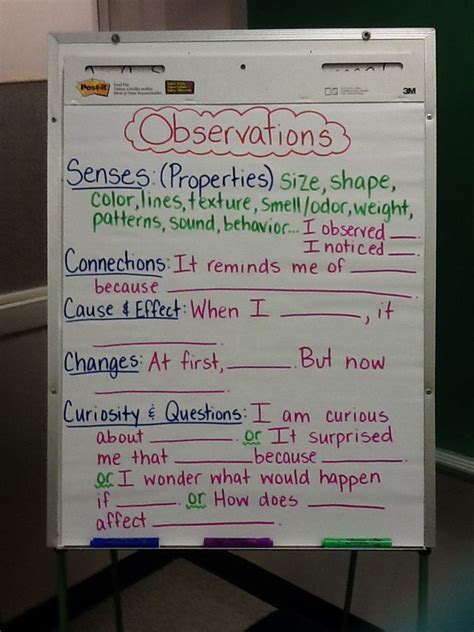 Post-it
3M
Observations
Senses: (Properties) size, shape,
color, lines, texture, smell/odor, weight,
patterns, sound, behavior... I observed ___.
I noticed ___.
Connections: It reminds me of ______
because ______________.
Cause & Effect: When I ______, it
______________.
Changes: At first, ______. But now
______________.
Curiosity & Questions: I am curious
about ________. or It surprised
me that ________ because ________.
or I wonder what would happen
if ______. or How does ______
affect ____________.